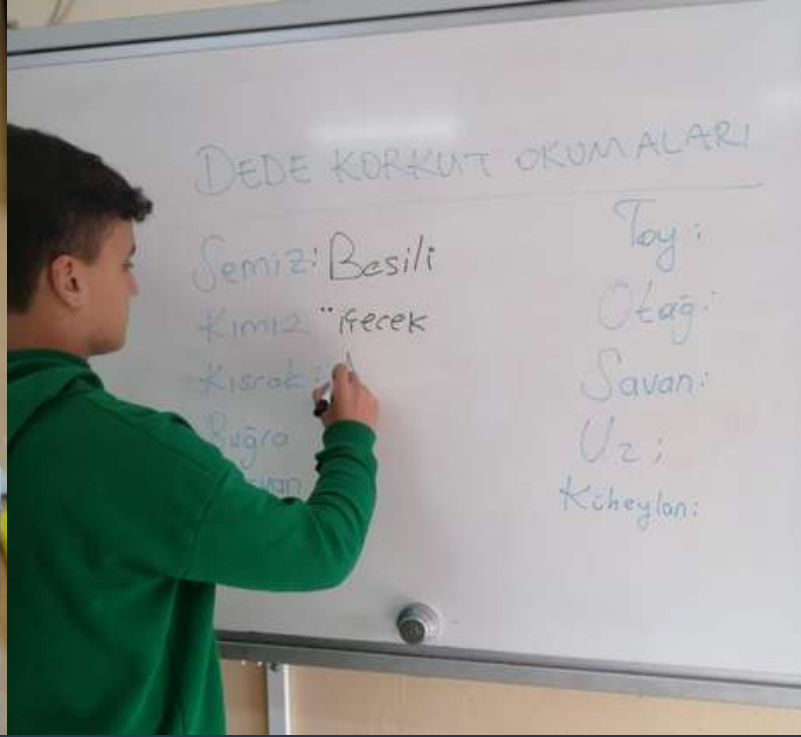 DEDE KORKUT OKUMALARI
Semiz: Besili
Kımız: içecek
Kısrak:
Buğra
Toy:
Otağ:
Savan:
Uz:
Küheylan: